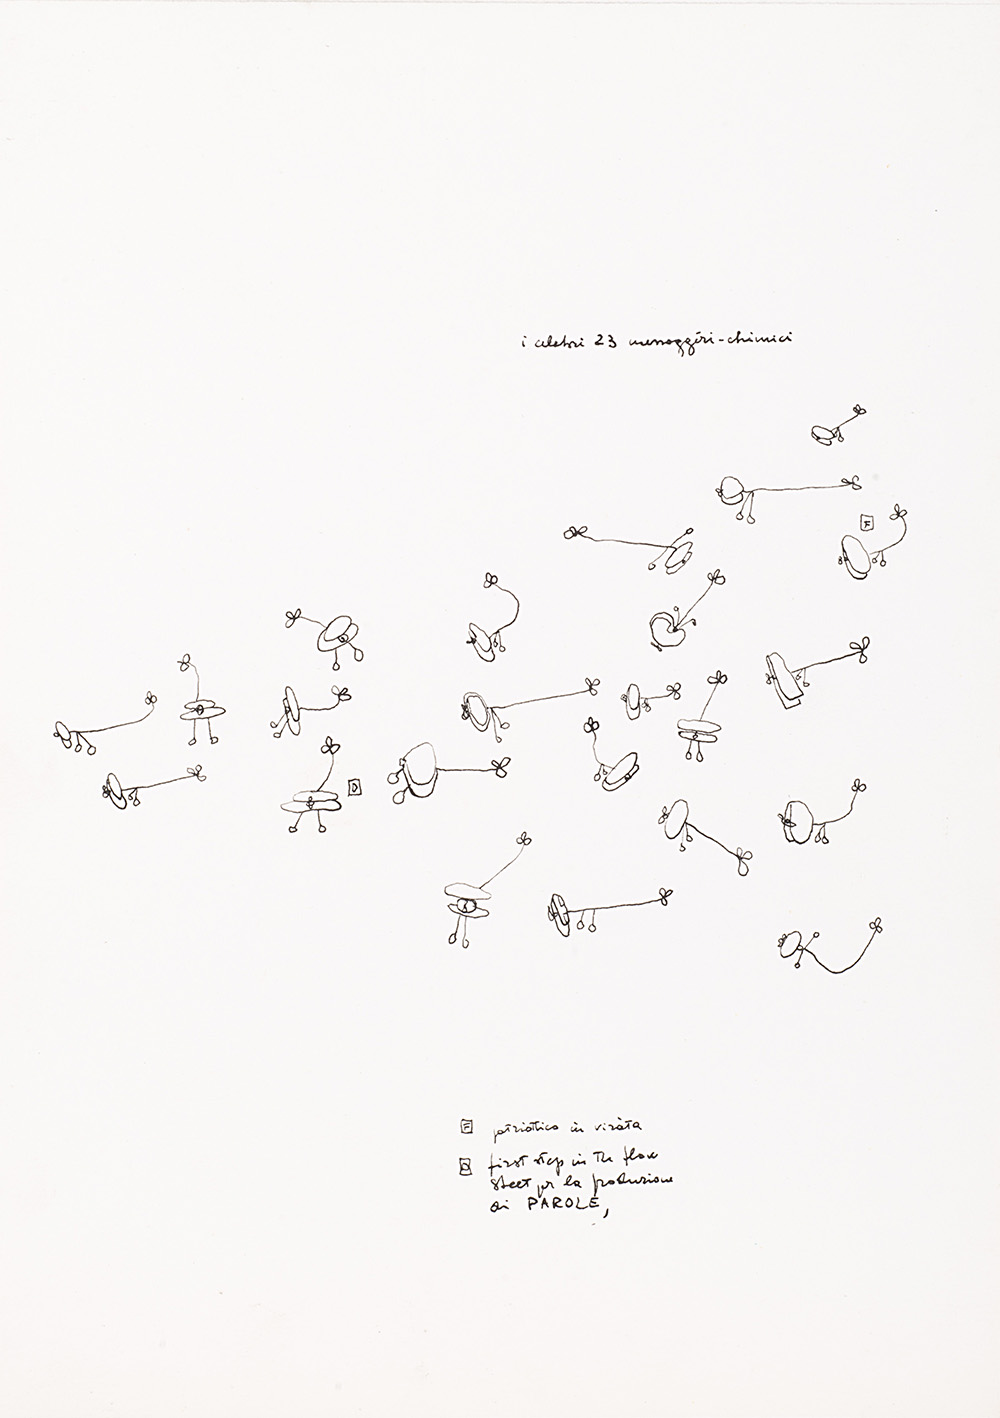 i celebri 23 messaggeri-chimici
F
D
F patriottico in virata
D first step in the flow
sheet per la produzione
di PAROLE,